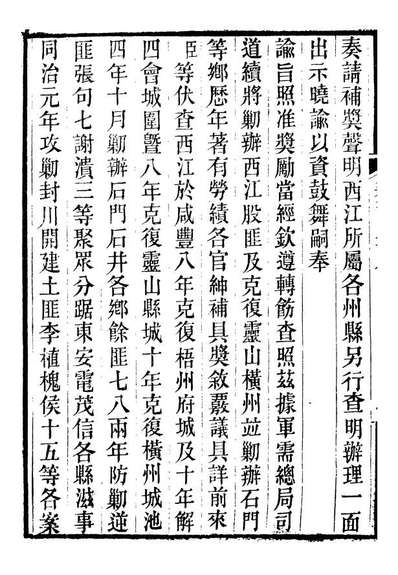 奏請補奬聲明西江所屬各州縣另行查明辦理一面
出示曉諭以資鼓舞嗣奉
諭旨照准奬勵當經欽遵轉飭查照茲據軍需總局司
道續將勦辦西江股匪及克復靈山橫州並勦辦石門
等鄉歷年著有勞績各官紳補具奬敘覈議具詳前來
臣等伏查西江於咸豐八年克復梧州府城及十年解
四會城圍暨八年克復靈山縣城十年克復橫州城池
四年十月勦辦石門石井各鄉餘匪七八兩年防勦逆
匪張句七謝潰三等聚眾分踞東安電茂信各縣滋事
同治元年攻勦封川開建土匪李植槐侯十五等各案